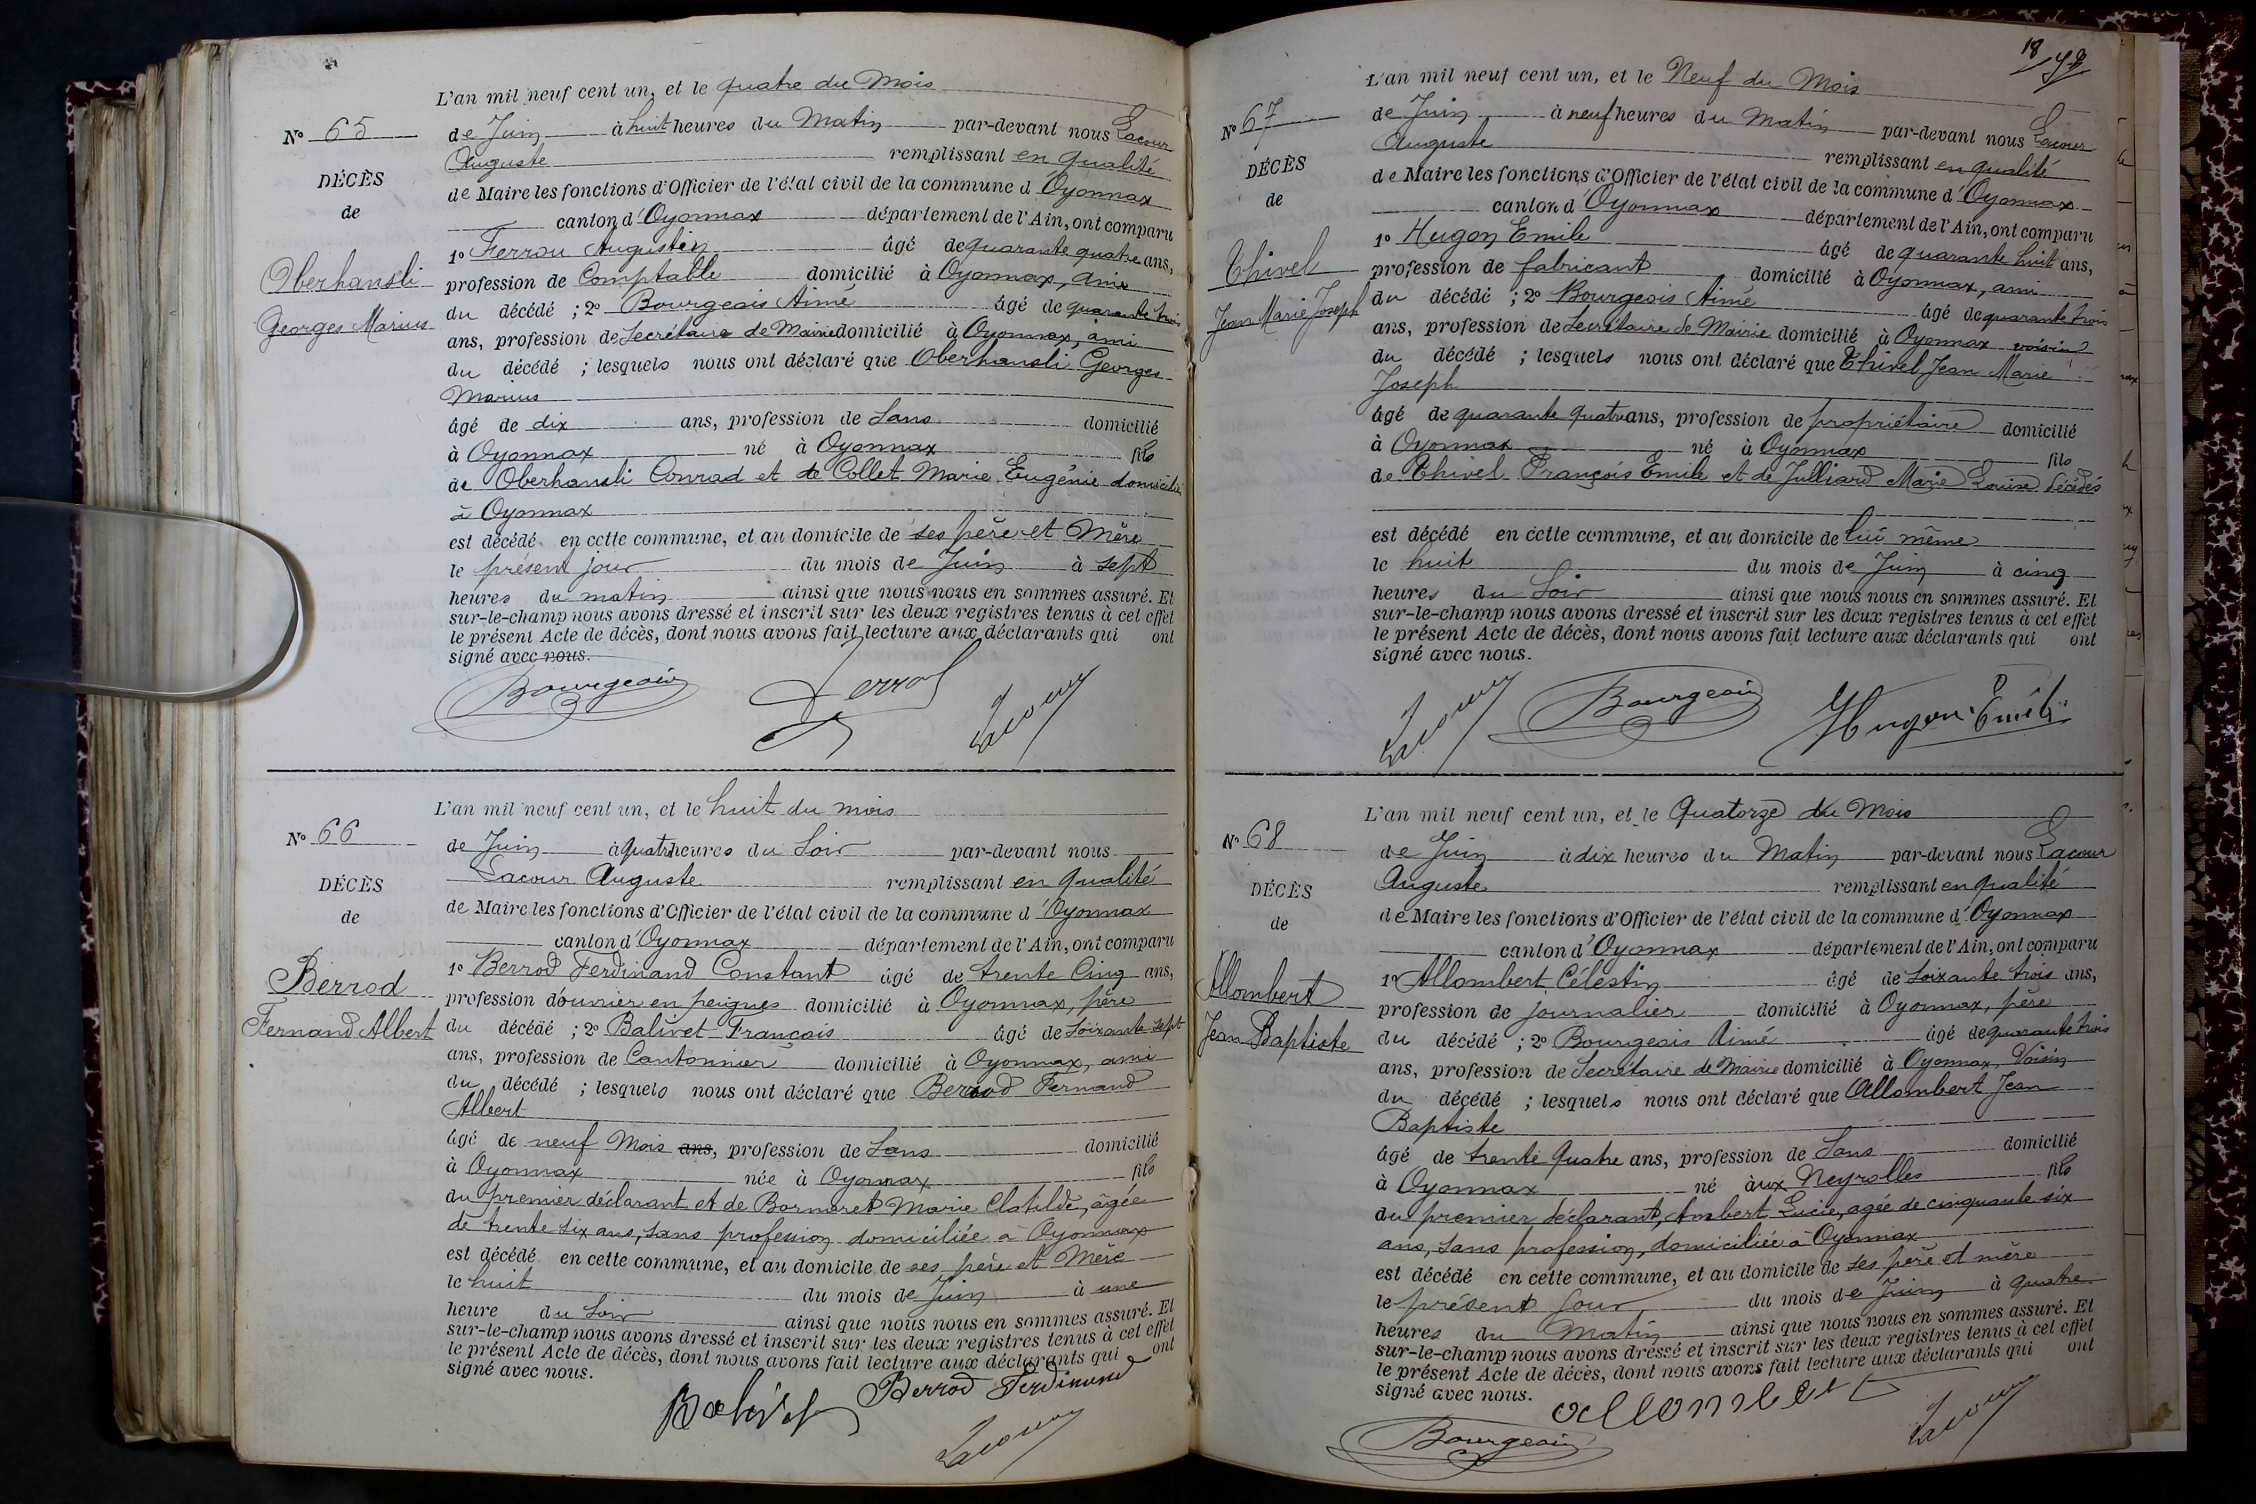 L'an mil neuf cent un, et le quatre du Mois
N° 65
de Juin à huit heures du Matin par-devant nous Lacour
Auguste remplissant en qualité
DÉCÈS
de Maire les fonctions d'Officier de l'état civil de la commune d'Oyonnax
de
canton d'Oyonnax département de l'Ain, ont comparu
1° Ferrou Augustin âgé de quarante quatre ans,
Oberhansli
profession de Comptable domicilié à Oyonnax, ami
du décédé ; 2° Bourgeois Aimé âgé de quarante trois
Georges Marius
ans, profession de Secrétaire de Mairie domicilié à Oyonnax, ami
du décédé ; lesquels nous ont déclaré que Oberhansli Georges
Marius
âgé de dix ans, profession de Sans domicilié
à Oyonnax né à Oyonnax fils
de Oberhansli Conrad et de Collet Marie Eugénie domicilié
à Oyonnax
est décédé en cette commune, et au domicile de ses père et Mère
le présent jour du mois de Juin à sept
heures du matin ainsi que nous nous en sommes assuré. Et
sur-le-champ nous avons dressé et inscrit sur les deux registres tenus à cet effet
le présent Acte de décès, dont nous avons fait lecture aux déclarants qui ont
signé avec nous.
Bourgeois Lacour
L'an mil neuf cent un, et le huit du mois
N° 66
de Juin à quatre heures du Soir par-devant nous
Lacour Auguste remplissant en qualité
DÉCÈS
de Maire les fonctions d'Officier de l'état civil de la commune d'Oyonnax
de
canton d'Oyonnax département de l'Ain, ont comparu
1° Berrod Ferdinand Constant âgé de trente Cinq ans,
Berrod
profession d'ouvrier en peignes domicilié à Oyonnax, père
Fernand Albert
du décédé ; 2° Balivet François âgé de Soixante sept
ans, profession de Cantonnier domicilié à Oyonnax, ami
du décédé ; lesquels nous ont déclaré que Berrod Fernand
Albert
âgé de neuf Mois ans, profession de Sans domicilié
à Oyonnax née à Oyonnax fils
du premier déclarant et de Bormeret Marie Clotilde, âgée
de trente six ans, sans profession domiciliée à Oyonnax
est décédé en cette commune, et au domicile de ses père et Mère
le huit du mois de Juin à une
heure du Soir ainsi que nous nous en sommes assuré. Et
sur-le-champ nous avons dressé et inscrit sur les deux registres tenus à cet effet
le présent Acte de décès, dont nous avons fait lecture aux déclarants qui ont
signé avec nous.
Balivet Berrod Ferdinand
Lacour
18
L'an mil neuf cent un, et le Neuf du Mois
N° 67
de Juin à neuf heures du Matin par-devant nous Lacour
Auguste remplissant en qualité
DÉCÈS
de Maire les fonctions d'Officier de l'état civil de la commune d'Oyonnax
de
canton d'Oyonnax département de l'Ain, ont comparu
1° Hugon Emile âgé de quarante huit ans,
Thivel
profession de fabricant domicilié à Oyonnax, ami
Jean Marie Joseph
du décédé ; 2° Bourgeois Aimé âgé de quarante trois
ans, profession de Secrétaire de Mairie domicilié à Oyonnax voisin
du décédé ; lesquels nous ont déclaré que Thivel Jean Marie
Joseph
âgé de quarante quatre ans, profession de propriétaire domicilié
à Oyonnax né à Oyonnax fils
de Thivel François Emile et de Julliard Marie Louise décédés
est décédé en cette commune, et au domicile de lui même
le huit du mois de Juin à cinq
heures du Soir ainsi que nous nous en sommes assuré. Et
sur-le-champ nous avons dressé et inscrit sur les deux registres tenus à cet effet
le présent Acte de décès, dont nous avons fait lecture aux déclarants qui ont
signé avec nous.
Lacour Bourgeois Hugon Emile
L'an mil neuf cent un, et le Quatorze du Mois
N° 68
de Juin à dix heures du Matin par-devant nous Lacour
Auguste remplissant en qualité
DÉCÈS
de Maire les fonctions d'Officier de l'état civil de la commune d'Oyonnax
de
canton d'Oyonnax département de l'Ain, ont comparu
1° Allombert Célestin âgé de Soixante trois ans,
Allombert
profession de journalier domicilié à Oyonnax, père
Jean Baptiste
du décédé ; 2° Bourgeois Aimé âgé de quarante trois
ans, profession de Secrétaire de Mairie domicilié à Oyonnax, Voisin
du décédé ; lesquels nous ont déclaré que Allombert Jean
Baptiste
âgé de trente Quatre ans, profession de Sans domicilié
à Oyonnax né aux Neyrolles fils
du premier déclarant, Ambert Lucie, agée de cinquante six
ans, sans profession, domiciliée à Oyonnax
est décédé en cette commune, et au domicile de ses père et mère
le présent Jour, du mois de Juin à quatre
heures du Matin ainsi que nous nous en sommes assuré. Et
sur-le-champ nous avons dressé et inscrit sur les deux registres tenus à cet effet
le présent Acte de décès, dont nous avons fait lecture aux déclarants qui ont
signé avec nous. allombert Lacour
Bourgeois